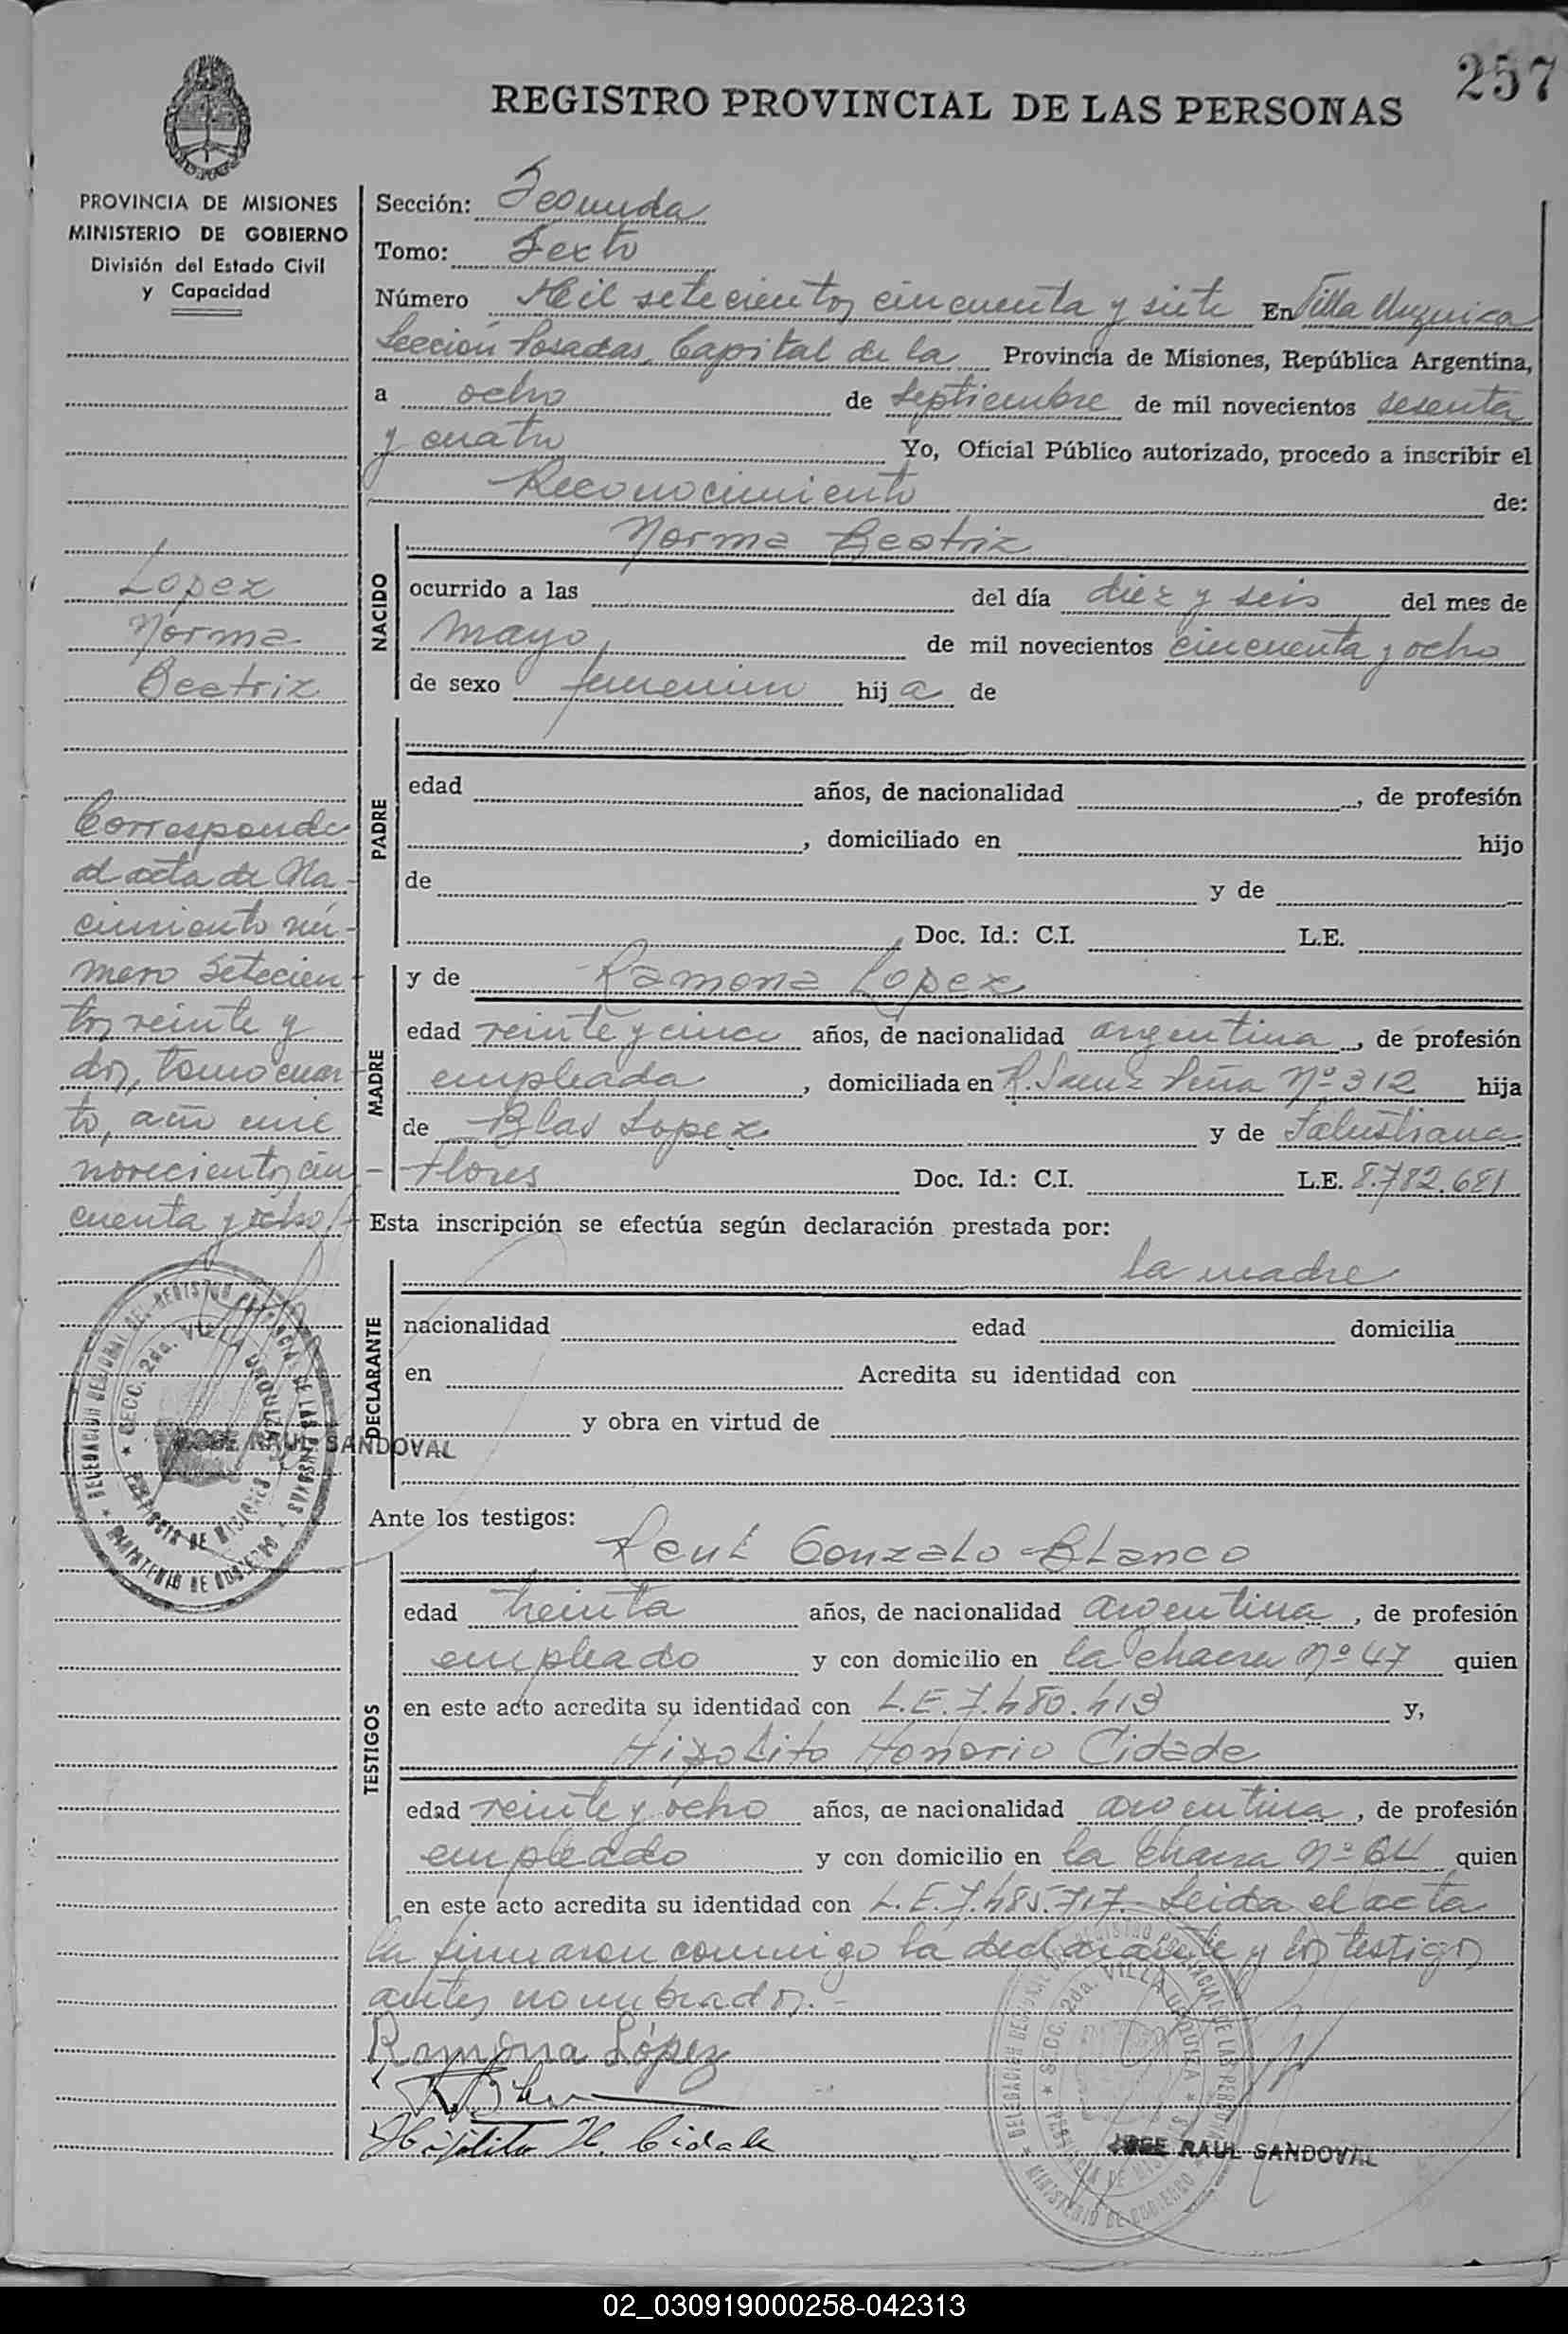 257
REGISTRO PROVINCIAL DE LAS PERSONAS
PROVINCIA DE MISIONES
MINISTERIO DE GOBIERNO
División del Estado Civil
y Capacidad
Lopez
Norma
Beatriz
Corresponde
al acta de Na-
cimiento nú-
mero setecien-
tos veinte y
dos, tomo cuar-
to, año mil
novecientos cin-
cuenta y ocho
DELEGACION REGIONAL DEL REGISTRO PROVINCIAL DE LAS PERSONAS
SECC. 2da. VILLA URQUIZA
MINISTERIO DE GOBIERNO
JOSE RAUL SANDOVAL
Sección: Segunda
Tomo: Sexto
Número Mil setecientos cincuenta y siete En Villa Urquiza
Sección Posadas, Capital de la Provincia de Misiones, República Argentina,
a ocho de Septiembre de mil novecientos sesenta
y cuatro Yo, Oficial Público autorizado, procedo a inscribir el
Reconocimiento de:
NACIDO
Norma Beatriz
ocurrido a las del día diez y seis del mes de
mayo, de mil novecientos cincuenta y ocho
de sexo femenino hija de
PADRE
edad años, de nacionalidad , de profesión
, domiciliado en hijo
de y de
Doc. Id.: C.I. L.E.
MADRE
y de Ramona Lopez
edad veinte y cinco años, de nacionalidad argentina, de profesión
empleada, domiciliada en R. Saenz Peña Nº 312 hija
de Blas Lopez y de Salustiana
Flores Doc. Id.: C.I. L.E. 8.782.681
Esta inscripción se efectúa según declaración prestada por:
DECLARANTE
la madre
nacionalidad edad domicilia
en Acredita su identidad con
y obra en virtud de
Ante los testigos:
TESTIGOS
Raul Gonzalo Blanco
edad treinta años, de nacionalidad argentina, de profesión
empleado y con domicilio en la chacra Nº 47 quien
en este acto acredita su identidad con L.E. 7.480.413 y,
Hipolito Honorio Cidade
edad veinte y ocho años, de nacionalidad argentina, de profesión
empleado y con domicilio en la chacra Nº 64 quien
en este acto acredita su identidad con L.E. 7.485.717. Leida el acta
la firmaron conmigo la declarante y los testigos
antes nombrados.-
Ramona López
Hipólito H. Cidade
DELEGACION REGIONAL DEL REGISTRO PROVINCIAL DE LAS PERSONAS
SECC. 2da. VILLA URQUIZA
MINISTERIO DE GOBIERNO
JOSE RAUL SANDOVAL
02_030919000258-042313